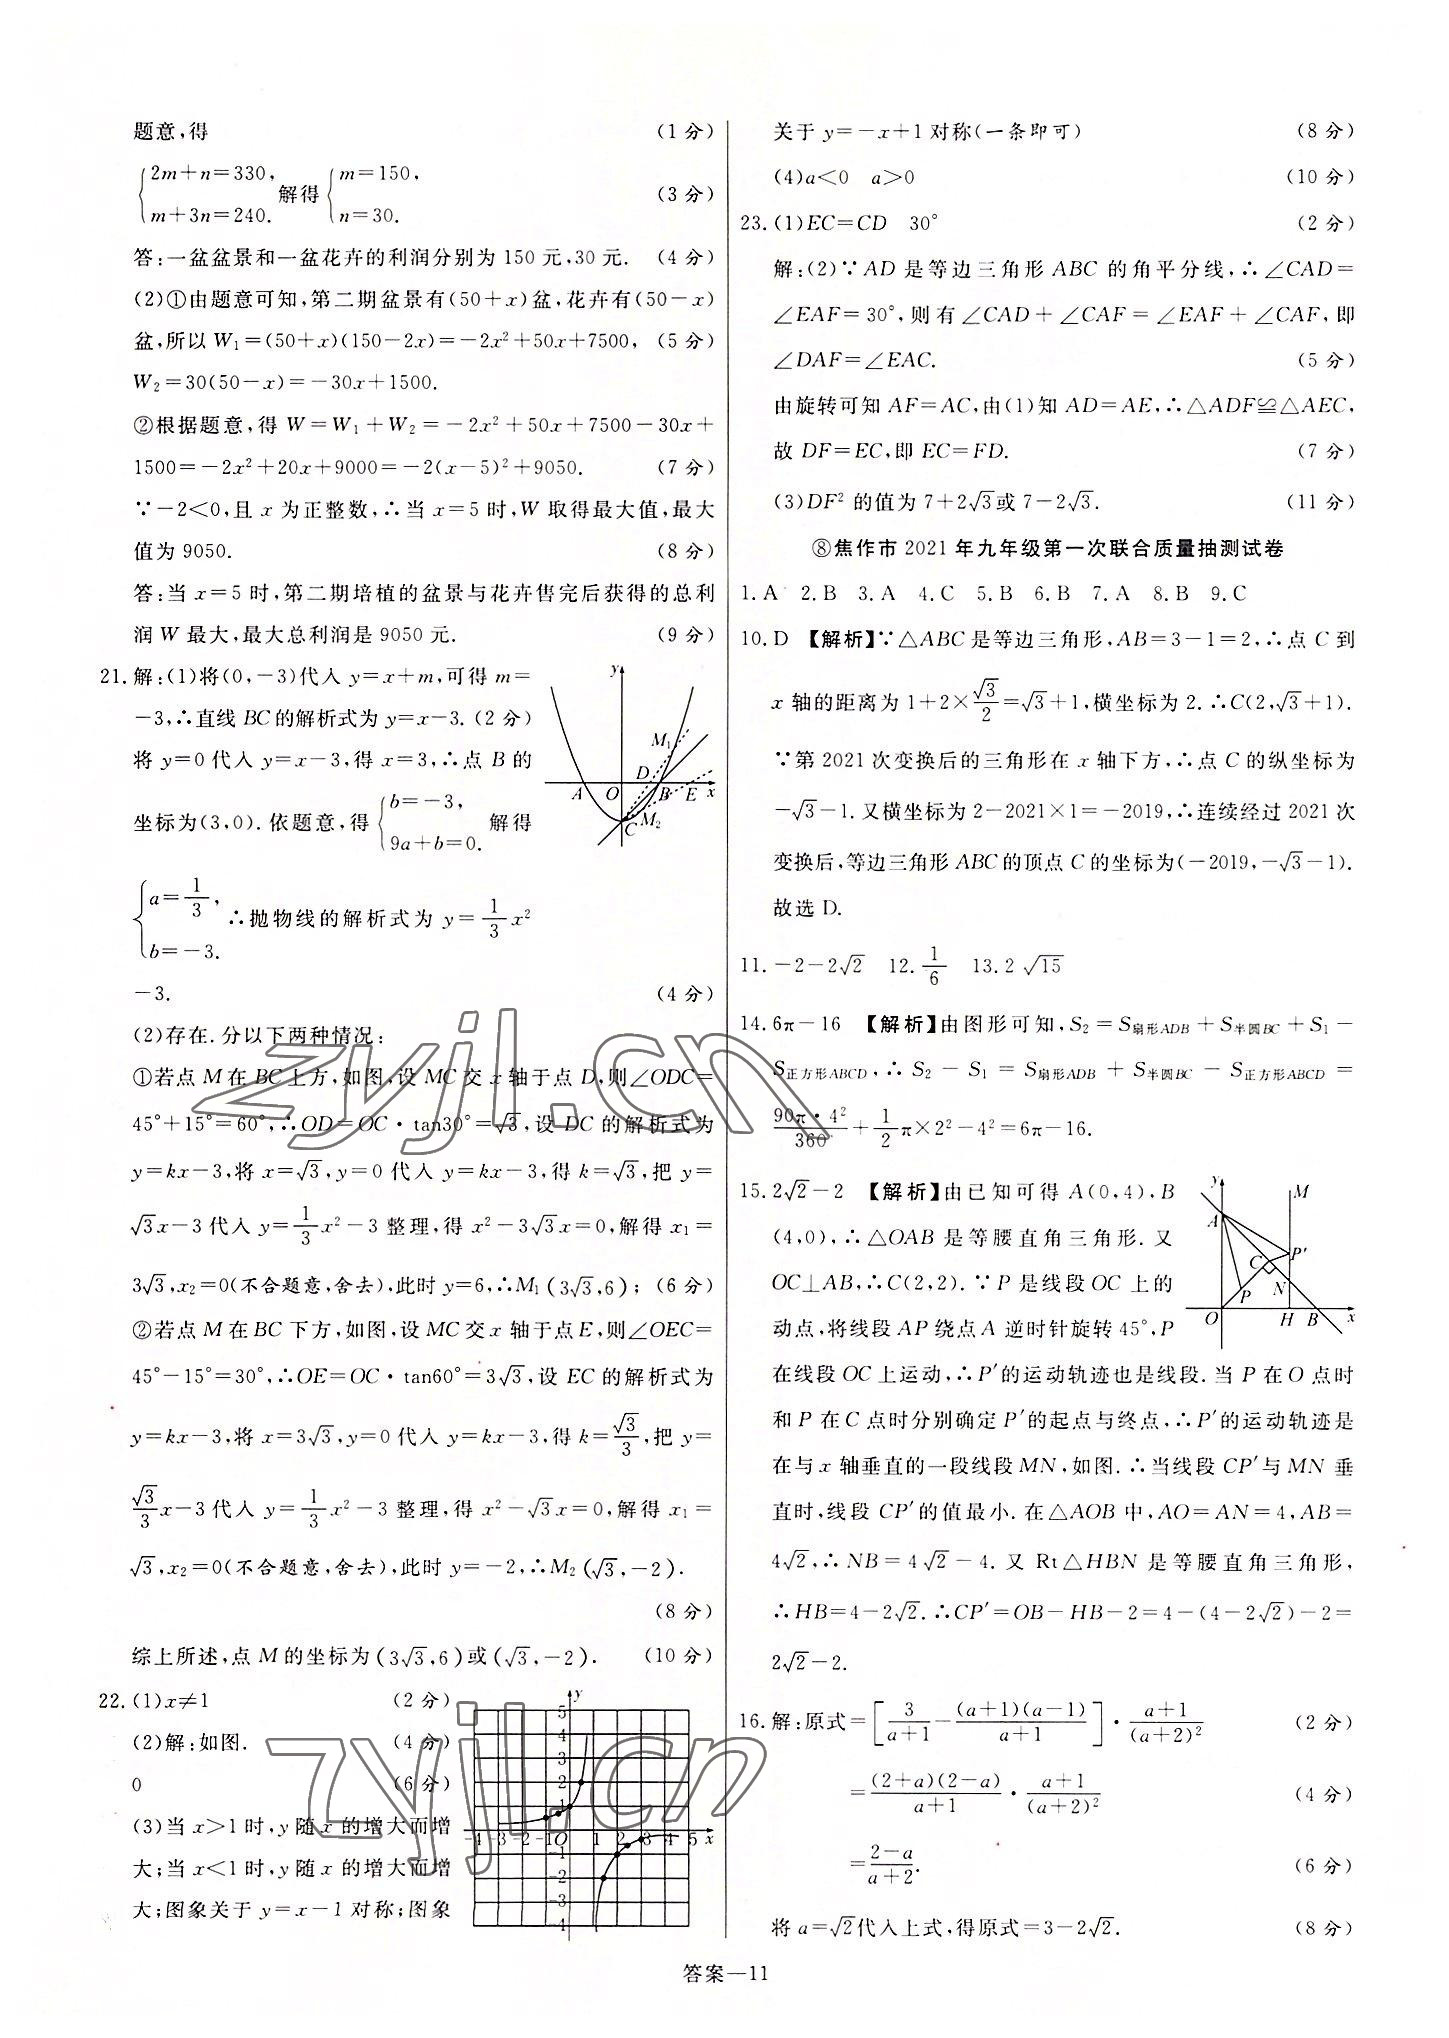 题意,得 (1 分)
{2m+n=330, m+3n=240. 解得{m=150, n=30. (3 分)
答:一盆盆景和一盆花卉的利润分别为 150 元,30 元. (4 分)
(2)①由题意可知,第二期盆景有(50+x)盆,花卉有(50-x)
盆,所以 W₁=(50+x)(150-2x)=-2x²+50x+7500, (5 分)
W₂=30(50-x)=-30x+1500.
②根据题意,得 W=W₁+W₂=-2x²+50x+7500-30x+
1500=-2x²+20x+9000=-2(x-5)²+9050. (7 分)
∵-2<0,且 x 为正整数,∴当 x=5 时,W 取得最大值,最大
值为 9050. (8 分)
答:当 x=5 时,第二期培植的盆景与花卉售完后获得的总利
润 W 最大,最大总利润是 9050 元. (9 分)
21.解:(1)将(0,-3)代入 y=x+m,可得 m=
-3,∴直线 BC 的解析式为 y=x-3. (2 分)
将 y=0 代入 y=x-3,得 x=3,∴点 B 的
坐标为(3,0).依题意,得{b=-3, 9a+b=0. 解得
{a=1/3, b=-3. ∴抛物线的解析式为 y=1/3x²
-3. (4 分)
y M₁ D A O B E x C M₂
(2)存在.分以下两种情况:
①若点 M 在 BC 上方,如图,设 MC 交 x 轴于点 D,则∠ODC=
45°+15°=60°,∴OD=OC·tan30°=√3,设 DC 的解析式为
y=kx-3,将 x=√3,y=0 代入 y=kx-3,得 k=√3,把 y=
√3x-3 代入 y=1/3x²-3 整理,得 x²-3√3x=0,解得 x₁=
3√3,x₂=0(不合题意,舍去),此时 y=6,∴M₁(3√3,6); (6 分)
②若点 M 在 BC 下方,如图,设 MC 交 x 轴于点 E,则∠OEC=
45°-15°=30°,∴OE=OC·tan60°=3√3,设 EC 的解析式为
y=kx-3,将 x=3√3,y=0 代入 y=kx-3,得 k=√3/3,把 y=
√3/3x-3 代入 y=1/3x²-3 整理,得 x²-√3x=0,解得 x₁=
√3,x₂=0(不合题意,舍去),此时 y=-2,∴M₂(√3,-2).
(8 分)
综上所述,点 M 的坐标为(3√3,6)或(√3,-2). (10 分)
22.(1)x≠1 (2 分)
(2)解:如图. (4 分)
0 (6 分)
(3)当 x>1 时,y 随 x 的增大而增
大;当 x<1 时,y 随 x 的增大而增
大;图象关于 y=x-1 对称;图象
关于 y=-x+1 对称(一条即可) (8 分)
(4)a<0 a>0 (10 分)
23.(1)EC=CD 30° (2 分)
解:(2)∵AD 是等边三角形 ABC 的角平分线,∴∠CAD=
∠EAF=30°,则有∠CAD+∠CAF=∠EAF+∠CAF,即
∠DAF=∠EAC. (5 分)
由旋转可知 AF=AC,由(1)知 AD=AE,∴△ADF≌△AEC,
故 DF=EC,即 EC=FD. (7 分)
(3)DF² 的值为 7+2√3或 7-2√3. (11 分)
⑧焦作市 2021 年九年级第一次联合质量抽测试卷
1.A 2.B 3.A 4.C 5.B 6.B 7.A 8.B 9.C
10.D 【解析】∵△ABC 是等边三角形,AB=3-1=2,∴点 C 到
x 轴的距离为 1+2×√3/2=√3+1,横坐标为 2.∴C(2,√3+1).
∵第 2021 次变换后的三角形在 x 轴下方,∴点 C 的纵坐标为
-√3-1.又横坐标为 2-2021×1=-2019,∴连续经过 2021 次
变换后,等边三角形 ABC 的顶点 C 的坐标为(-2019,-√3-1).
故选 D.
11.-2-2√2 12.1/6 13.2√15
14.6π-16 【解析】由图形可知,S₂=S扇形ADB+S半圆BC+S₁-
S正方形ABCD,∴S₂-S₁=S扇形ADB+S半圆BC-S正方形ABCD=
90π·4²/360+1/2π×2²-4²=6π-16.
15.2√2-2 【解析】由已知可得 A(0,4),B
(4,0),∴△OAB 是等腰直角三角形.又
OC⊥AB,∴C(2,2).∵P 是线段 OC 上的
动点,将线段 AP 绕点 A 逆时针旋转 45°,P
y M A P' C P N O H B x
在线段 OC 上运动,∴P'的运动轨迹也是线段.当 P 在 O 点时
和 P 在 C 点时分别确定 P'的起点与终点,∴P'的运动轨迹是
在与 x 轴垂直的一段线段 MN,如图.∴当线段 CP'与 MN 垂
直时,线段 CP'的值最小.在△AOB 中,AO=AN=4,AB=
4√2,∴NB=4√2-4.又 Rt△HBN 是等腰直角三角形,
∴HB=4-2√2.∴CP'=OB-HB-2=4-(4-2√2)-2=
2√2-2.
16.解:原式=[3/(a+1)-(a+1)(a-1)/(a+1)]·(a+1)/(a+2)² (2 分)
=(2+a)(2-a)/(a+1)·(a+1)/(a+2)² (4 分)
=(2-a)/(a+2). (6 分)
将 a=√2代入上式,得原式=3-2√2. (8 分)
答案—11
zyjl.cn
zyjl.cn